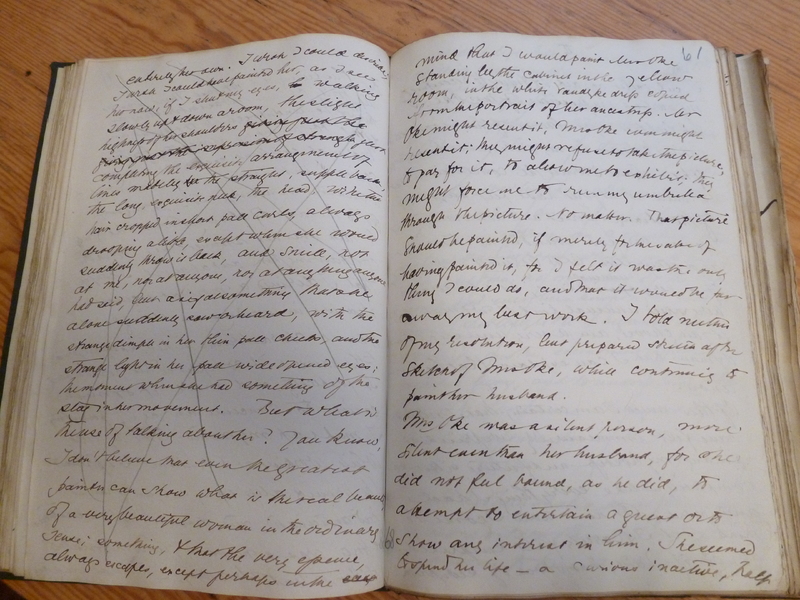 entirely her own. I wish I could describe
I wish I could have painted her, as I see
her now, if I shut my eyes, walking
slowly up & down a room, the slight
highness of her shoulders
completing the exquisite arrangement of
lines made by the straight, supple back,
the long, exquisite neck, the head with the
hair cropped in short pale curls, always
drooping a little, except when she would
suddenly throw it back, and smile, not
at me, nor at anyone, nor at anything anyone
had said, but as if at something that she
alone suddenly saw or heard, with the
strange dimple in her thin pale cheeks, and the
strange light in her pale wide opened eyes;
the moment when she had something of the
stag in her movement. But what is
the use of talking about her? You know,
I don't believe that even the greatest
painter can show what is the real beauty
of a very beautiful woman in the ordinary
sense; something, & that the very essence,
always escapes, except perhaps in the
61
mind that I would paint Mrs Oke
standing by the cabinet in the yellow
room, in the white Vandyke dress copied
from the portrait of her ancestress. Mr
Oke might resent it, Mrs Oke even might
resent it; they might refuse to take the picture,
to pay for it, to allow me to exhibit; they
might force me to run my umbrella
through the picture. No matter. That picture
should be painted, if merely for the sake of
having painted it, for I felt it was the only
thing I could do, and that it would be far
away my best work. I told neither
of my resolution, but prepared sketch after
sketch of Mrs Oke, while continuing to
paint her husband.
Mrs Oke was a silent person, more
silent even than her husband, for she
did not feel bound, as he did, to
attempt to entertain a guest or to
show any interest in him. She seemed
to spend her life — a curious inactive, half